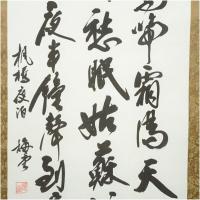 啼霜満天
愁眠姑蘇
夜半鐘聲到
楓橋夜泊